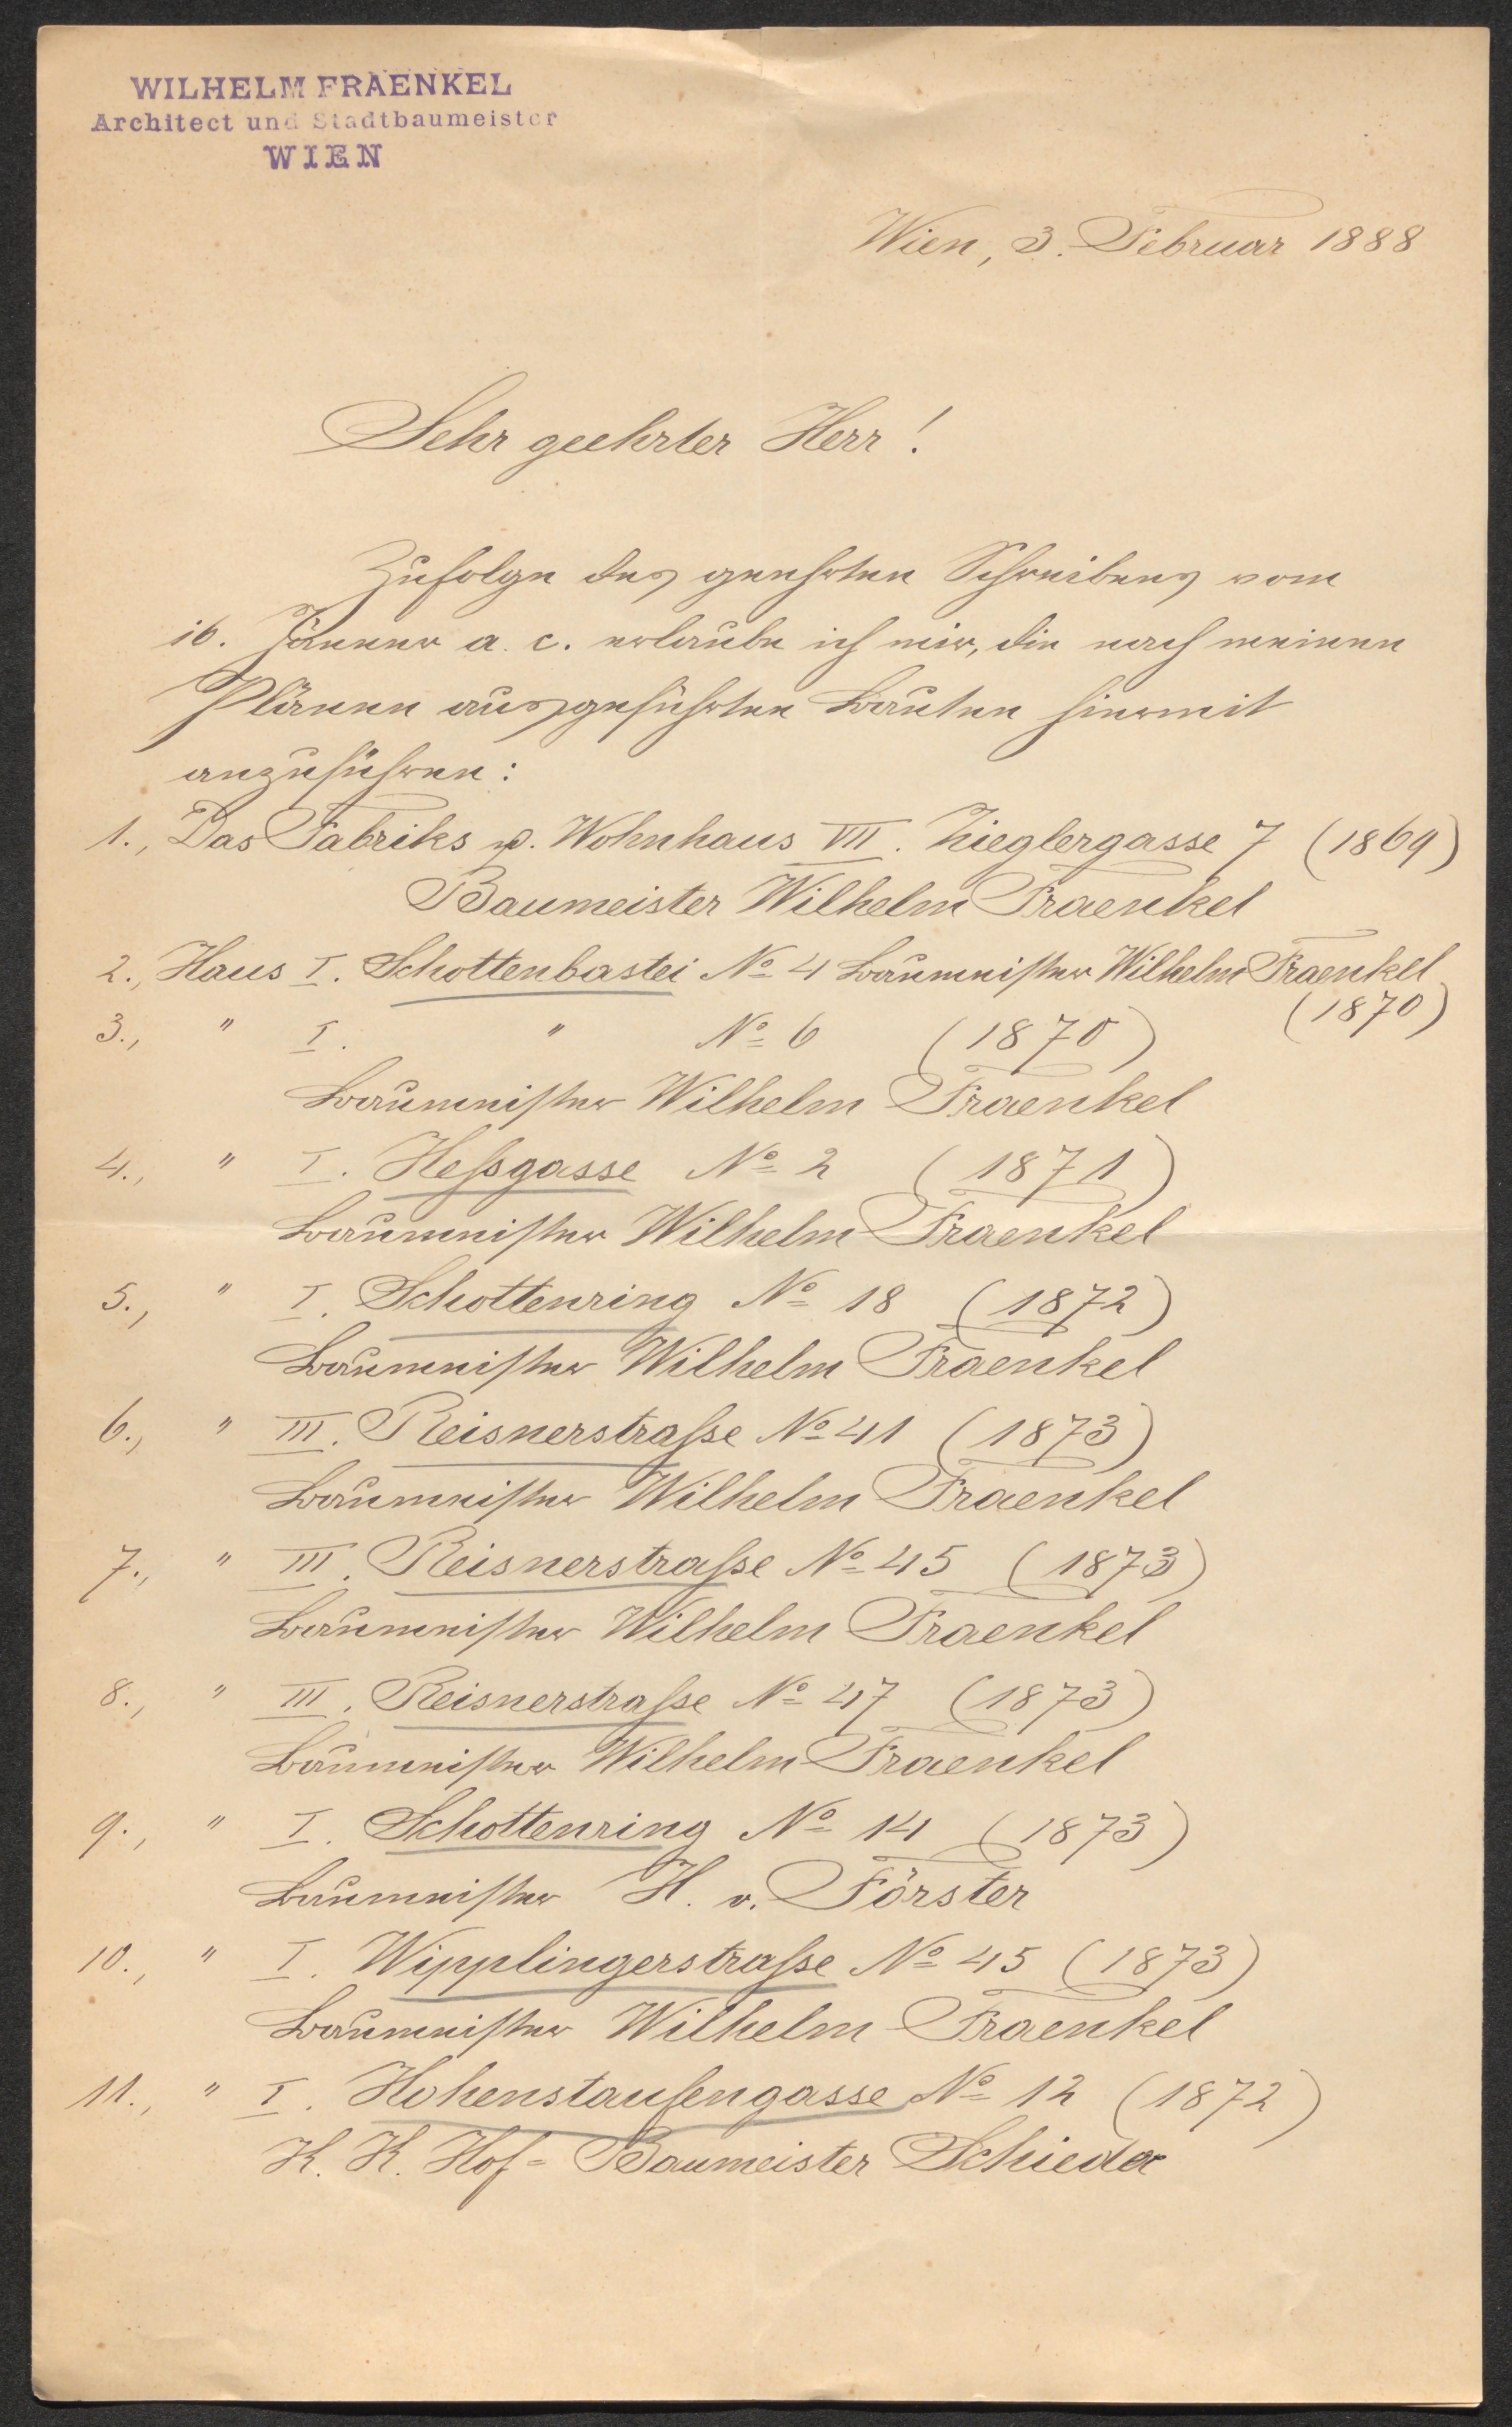 WILHELM FRAENKEL
Architect und Stadtbaumeister
WIEN
Wien, 3. Februar 1888
Sehr geehrter Herr!
Zufolge des geehrten Schreibens vom
16. Jänner a. c. erlaube ich mir, die nach meinen
Plänen ausgeführten Bauten hiermit
anzuführen:
1., Das Fabriks u. Wohnhaus VII. Zieglergasse 7 (1869)
Baumeister Wilhelm Fraenkel
2., Haus I. Schottenbastei No 4 Baumeister Wilhelm Fraenkel
(1870)
3., " I. " No 6 (1870)
Baumeister Wilhelm Fraenkel
4., " I. Heſsgasse No 2 (1871)
Baumeister Wilhelm Fraenkel
5., " I. Schottenring No 18 (1872)
Baumeister Wilhelm Fraenkel
6., " III. Reisnerstraſse No 41 (1873)
Baumeister Wilhelm Fraenkel
7., " III. Reisnerstraſse No 45 (1873)
Baumeister Wilhelm Fraenkel
8., " III. Reisnerstraſse No 47 (1873)
Baumeister Wilhelm Fraenkel
9., " I. Schottenring No 14 (1873)
Baumeister H. v. Förster
10., " I. Wipplingerstraſse No 45 (1873)
Baumeister Wilhelm Fraenkel
11., " I. Hohenstaufengasse No 12 (1872)
K. K. Hof- Baumeister Schieder